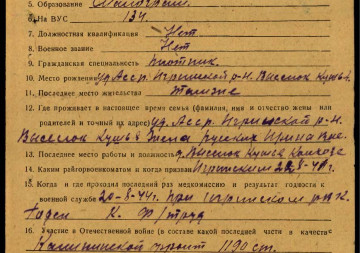 5. Образование Малограм.
6. На ВУС 134
7. Должностная квалификация Нет
8. Военное звание Нет
9. Гражданская специальность Плотник
10. Место рождения Уд. Асср. Игринский р-н. Выселок Кушья
11. Последнее место жительства Там же
12. Где проживает в настоящее время семья (фамилия, имя и отчество жены или
родителей и точный их адрес) Уд. Асср. Игринский р-н.
Выселок Кушья Русских Ирина
13. Последнее место работы и должность Выселок Кушья
14. Каким райгорвоенкоматом и когда призван Игринским
15. Когда и где проходил последний раз медкомиссию и результат годности к
военной службе 20-8-44г. при Игринском
Годен к. ф/труд
16. Участие в Отечественной войне (в составе какой последней части и в качестве
Калининский фронт 1190 сп.